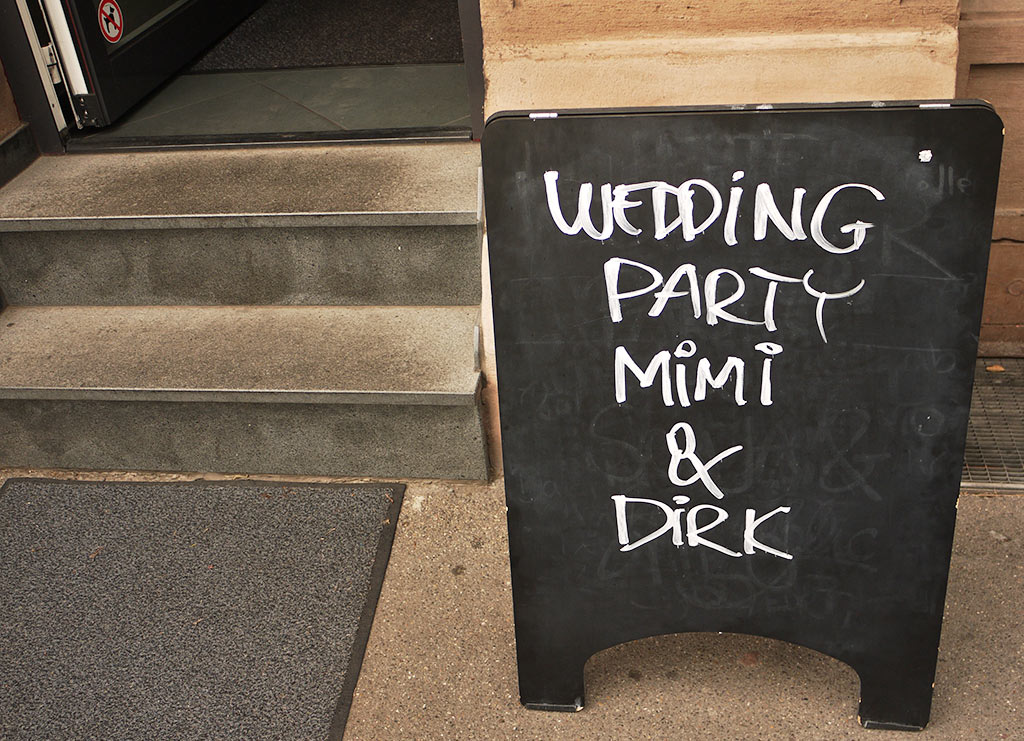 WEDDING
PARTY
MiMi
&
DiRK